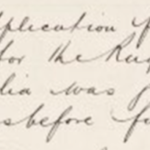 pplication f
for the Rug
lia was f
before fu